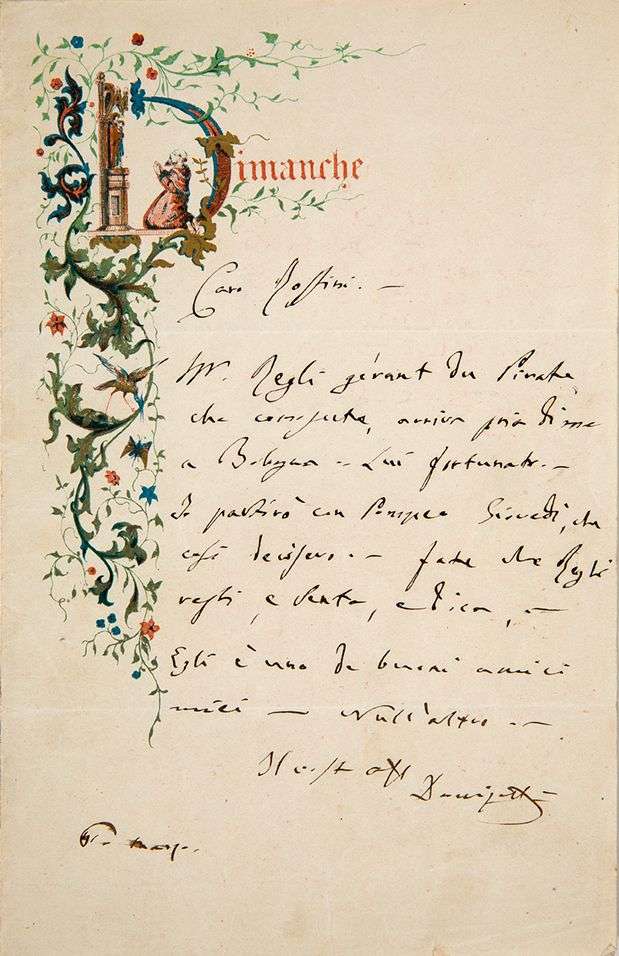 Dimanche
Caro Rossini. —
Mr. Regli gérant du Pirata
che conoscete, arriva pria di me
a Bologna — Lui fortunato. —
Io partirò con Pompeo Giovedì, che
così decisero. — fate che Regli
resti, e senta, e dica, —
Egli è uno de buoni amici
miei — Null'altro. —
Il vost aff
Donizetti
marzo.